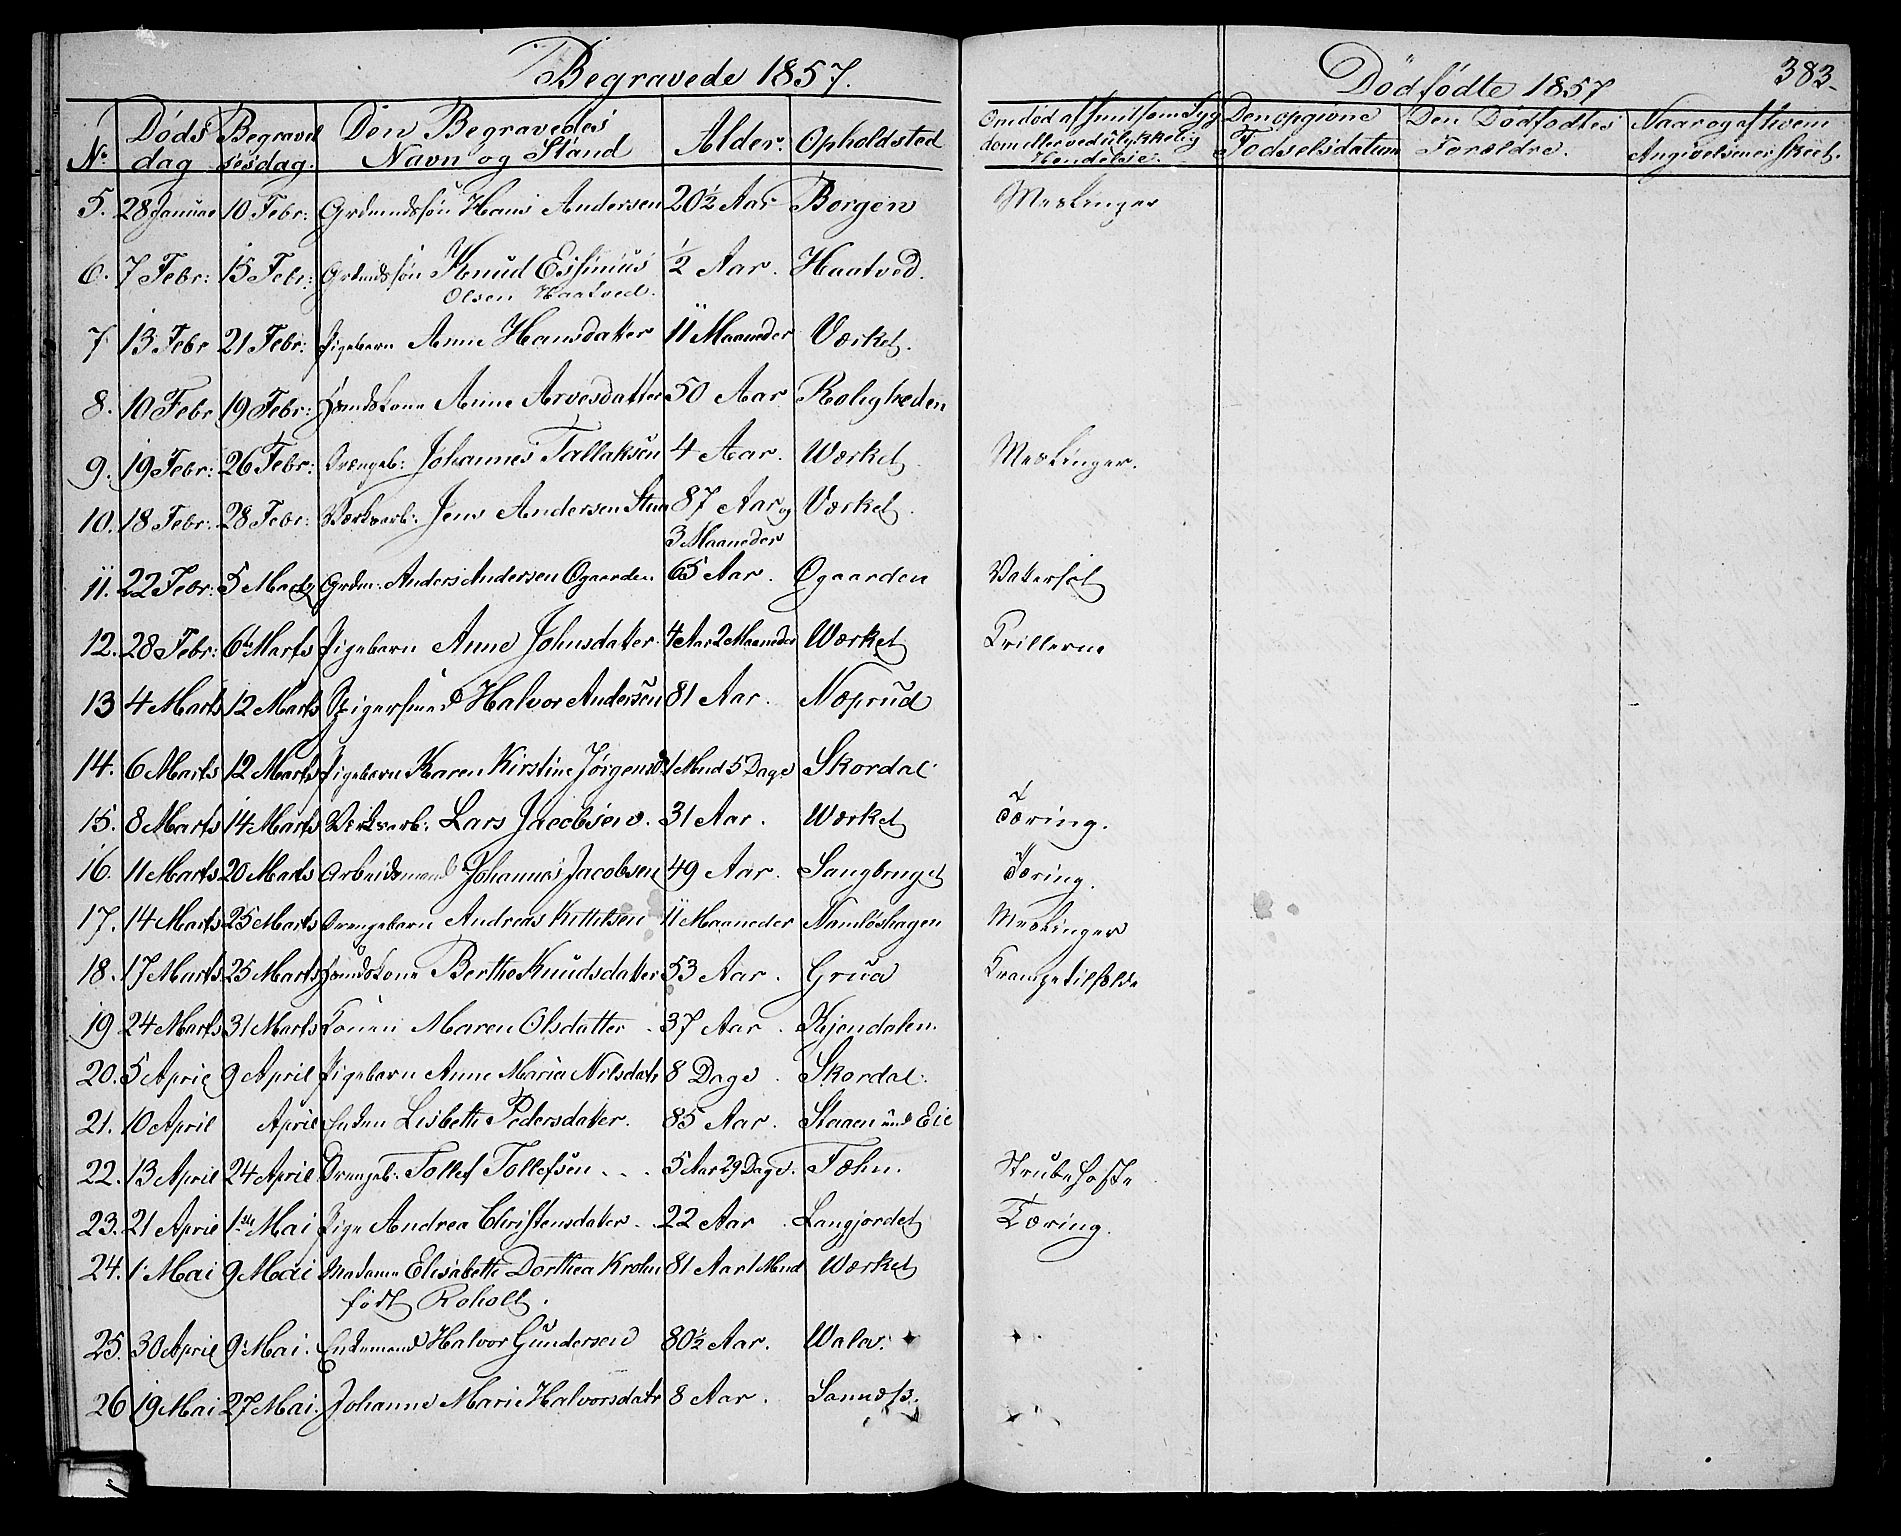 Begravede 1857.
No. Døds dag Begravelsesdag. Den Begravedes Navn og Stand Alder. Opholdsted
5. 28 Januar 10 Febr: Grdmndssøn Hans Andersen 20½ Aar Borgen
6. 7 Febr: 15 Febr: Grdmdssøn Knud Essinius ½ Aar. Haatved.
Olsen Haatved.
7. 13 Febr 21 Febr: Pigebarn Anne Hansdatter 11 Maaneder Værket.
8. 10 Febr 19 Febr: Hsmdskone Anne Arvesdatter 50 Aar Roligheden
9. 19 Febr: 26 Febr: Drengeb: Johannes Tallaksen 4 Aar. Værket
10. 18 Febr: 28 Febr: Værksarb: Jens Andersen 87 Aar og Værket.
3 Maaneder
11. 22 Febr: 5 Marts Grdm: Anders Andersen Øgaarden 65 Aar. Øgaarden
12. 28 Febr: 6te Marts Pigebarn Anne Johnsdatter 4 Aar 2 Maaneder Værket
13 4 Marts 12 Marts Spigersmed Halvor Andersen 81 Aar. Næprud
14. 6 Marts 12 Marts Pigebarn Karen Kirstine Jørgensd. 1 Mnd 5 Dage Skordal
15. 8 Marts 14 Marts Værksarb: Lars Jacobsen. 31 Aar. Værket
16. 11 Marts 20 Marts Arbeidsmand Johannes Jacobsen 49 Aar. Saugbruget
17. 14 Marts 25 Marts Drengebarn Andreas Kittilsen 11 Maaneder Namløshagen
18. 17 Marts 25 Marts Hsmdskone Berthe Knudsdatter 53 Aar. Grua
19 24 Marts 31 Marts Konen Maren Olsdatter. 37 Aar. Kjendalen.
20. 5 April 9 April Pigebarn Anne Maria Nilsdatr 8 Dage. Skordal.
21. 10 April April Enken Lisbeth Pedersdatter. 85 Aar. Staaen und Eie
22. 13 April 24 April Drengeb: Tollef Tollefsen 5 Aar 29 Dage. Fæhn.
23. 21 April 1ste Mai Pige Andrea Christensdatter. 22 Aar Langjordet
24. 1. Mai 9 Mai Madame Elisabeth Dorthea Krohn 81 Aar 1 Mnd Værket
født Roholt.
25. 30 April 9 Mai. Enkemand Halvor Gundersen 80½ Aar. Wala.
26 19 Mai 27 Mai. Johanne Marie Halvorsdatr 8 Aar. Sannæs.
Dødfødte 1857
383.
Om død af smitsom Sygdom eller ved ulykkelig Hendelse. Den opgivne Fødselsdatum Den Dødfødtes Forældre. Naar og af hvem Angivelsen er skeet.
Meslinger
Meslinger.
Vatersot
Krillerne
Tæring.
Tæring.
Meslinger
Krampetilfælde
Strubehoste
Tæring.